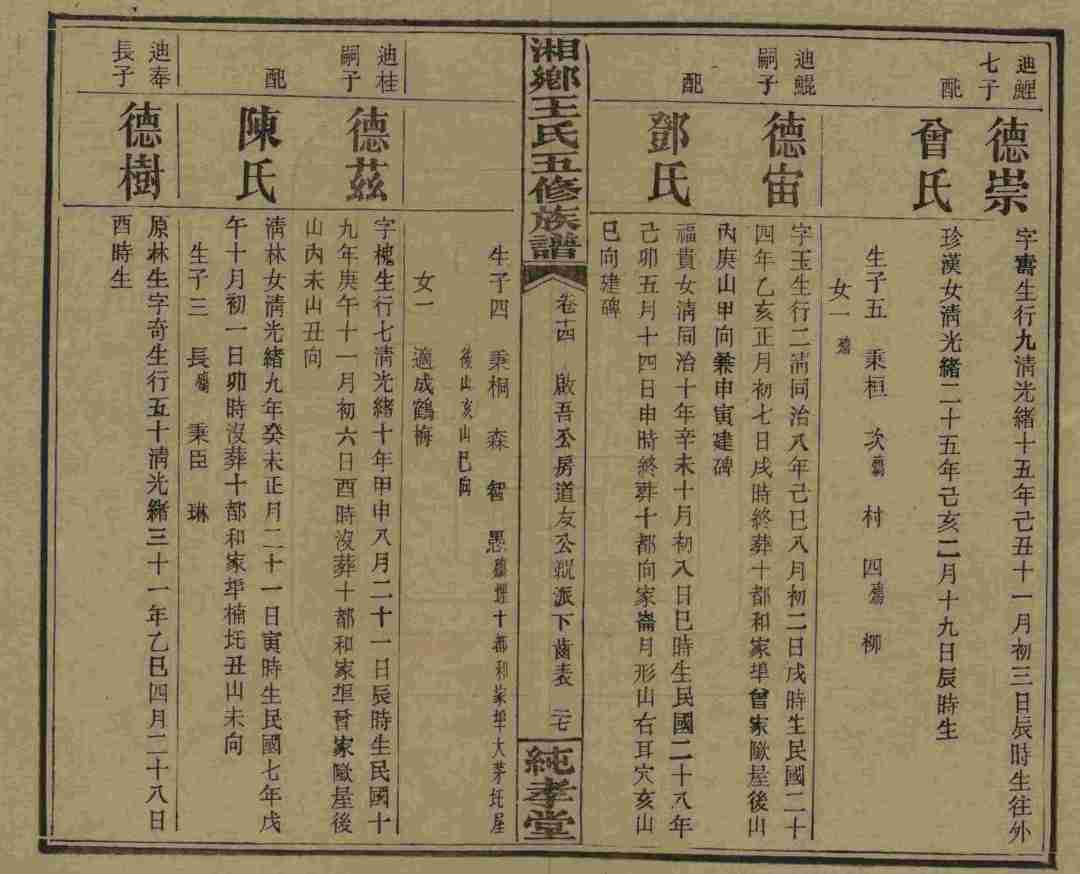 迪鯉七子
德崇
字壽生行九清光緒十五年己丑十一月初三日辰時生往外
配
曾氏
珍漢女清光緒二十五年己亥二月十九日辰時生
生子五 秉桓 次殤 村 四殤 柳
女一殤
迪鯤嗣子
德宙
字玉生行二清同治八年己巳八月初二日戌時生民國二十
四年乙亥正月初七日戌時終葬十都和家埠曾家歐屋後山
丙庚山甲向兼申寅建碑
配
鄧氏
福貴女清同治十年辛未十月初八日巳時生民國二十八年
己卯五月十四日申時終葬十都向家崙月形山右耳穴亥山
巳向建碑
湘鄉王氏五修族譜
卷十四 啟吾公房道友公派下齒表 二七
純孝堂
生子四 秉桐 森 智 愚殤埋十都和家埠大茅圫屋
後山亥山巳向
女一 適成鶴梅
迪桂嗣子
德茲
字槐生行七清光緒十年甲申八月二十一日辰時生民國十
九年庚午十一月初六日酉時沒葬十都和家埠曾家歐屋後
山內未山丑向
配
陳氏
清林女清光緒九年癸未正月二十一日寅時生民國七年戊
午十月初一日卯時沒葬十都和家埠楠圫丑山未向
生子三 長殤 秉臣 琳
迪奉長子
德樹
原林生字奇生行五十清光緒三十一年乙巳四月二十八日
酉時生